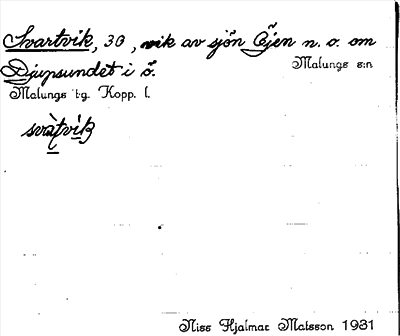 Svartvik, 30, vik av sjön Öjen n. o. om
Djupsundet i ö.
Malungs s:n
Malungs tg. Kopp. l.
svàtvik
Niss Hjalmar Matsson 1931